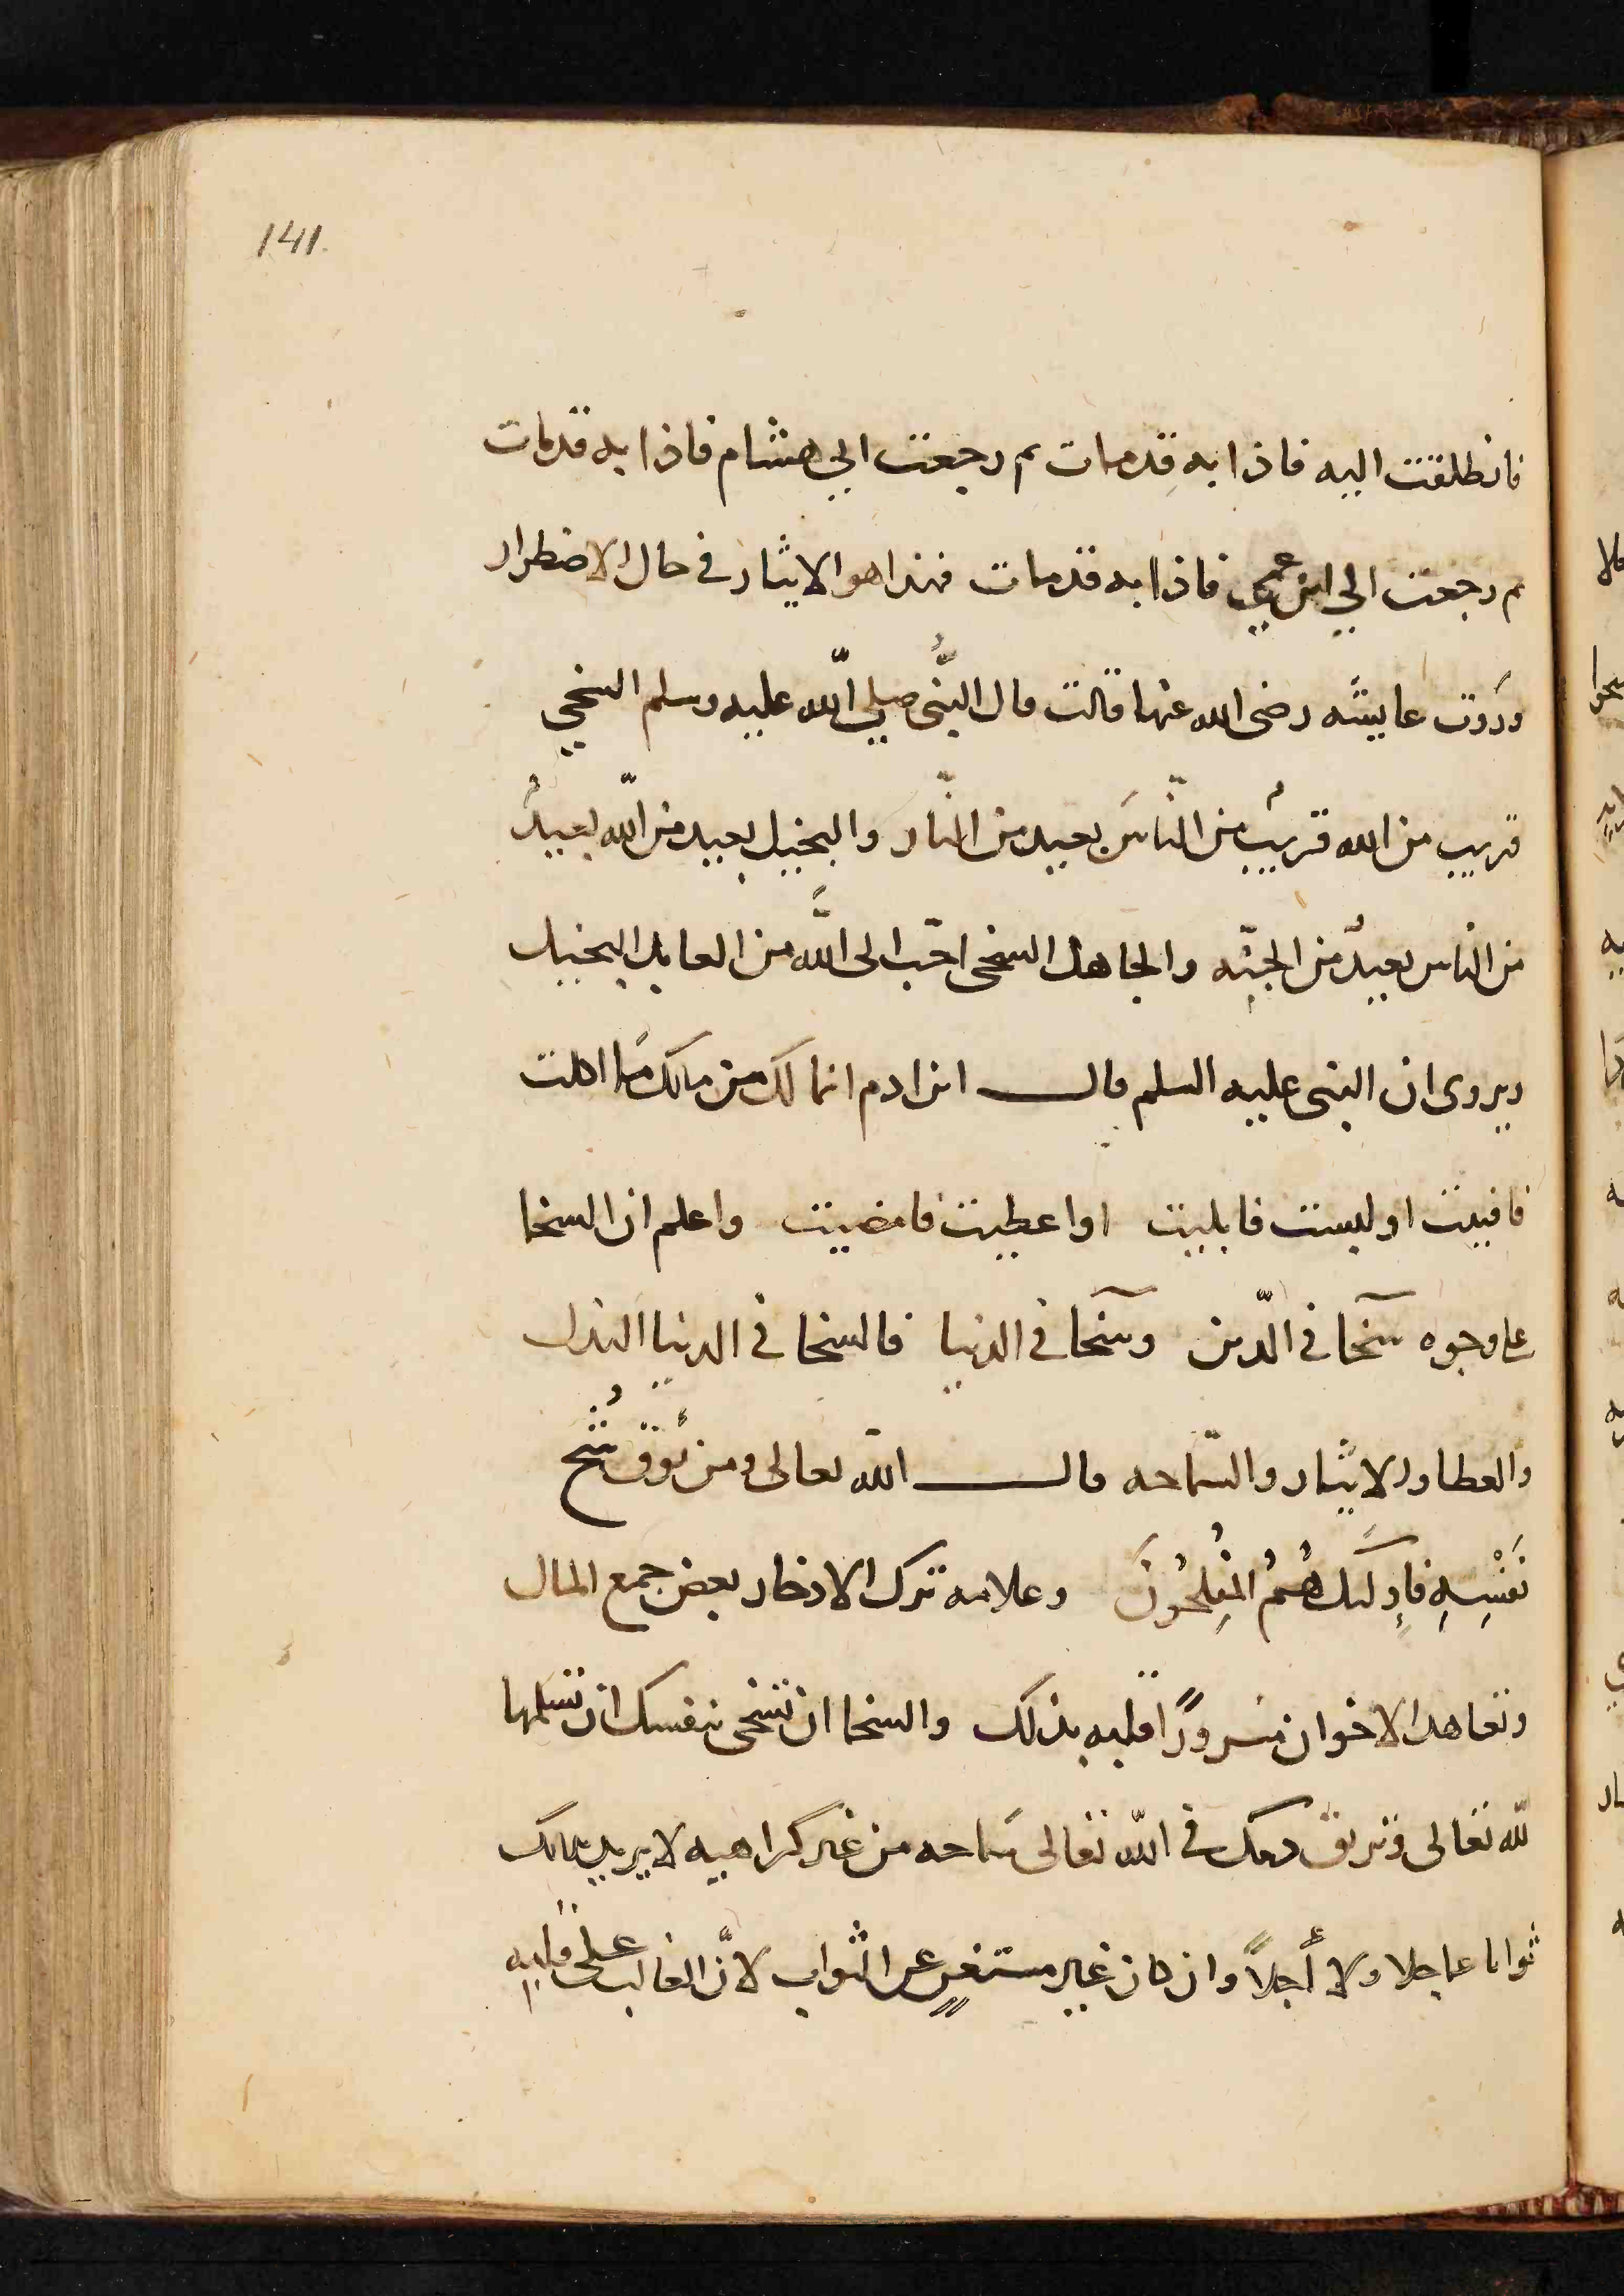 141.
فانطلقت اليه فاذا به قد مات ثم رجعت الي هشام فاذا به قد مات
ثم رجعت الي ابن عمي فاذا به قد مات فهذا هو الايثار في حال الاضطرار
وروت عايشه رضى الله عنها قالت قال النبُّى صلي الله عليه وسلم السخي
قريب من الله قريبٌ من الناسَ بعيد من النار والبخيل بعيد من اللّه بعيدٌ
من الناس بعيدٌ من الجنّه والجاهل السخى احبّ الى اللَّه من العابد البخيل
ويروى ان النبى عليه السلم قال ابن ادم انما لك من مالك مَا اكلت
فافنيت او لبست فابليت او اعطيت فامضيت واعلم ان السخا
على وجوه سَخآ في الدّين وسَخآ في الدنيا فالسخا في الدنيا البذل
والعطا والايثار والسّماحه قال اللّه تعالى ومن يُوقَ شُحَّ
نَفْسِهِ فاولَئِك هُمُ المُفِلحُونَ وعلامه ترك الادخار بغض جمع المال
وتعاهد الاخوان مسرورًا قلبه بذلك والسخا ان تسخى بنفسك ان تتلفها
للّه تعالى وتريق دمك في اللّه تعالى سَماحه من غير كراهيه لا يريد بذلك
ثوابا عاجلا ولا أجلاً وان كان غير مستغنٍ عن الثواب لانَّ الغالب على قلبه